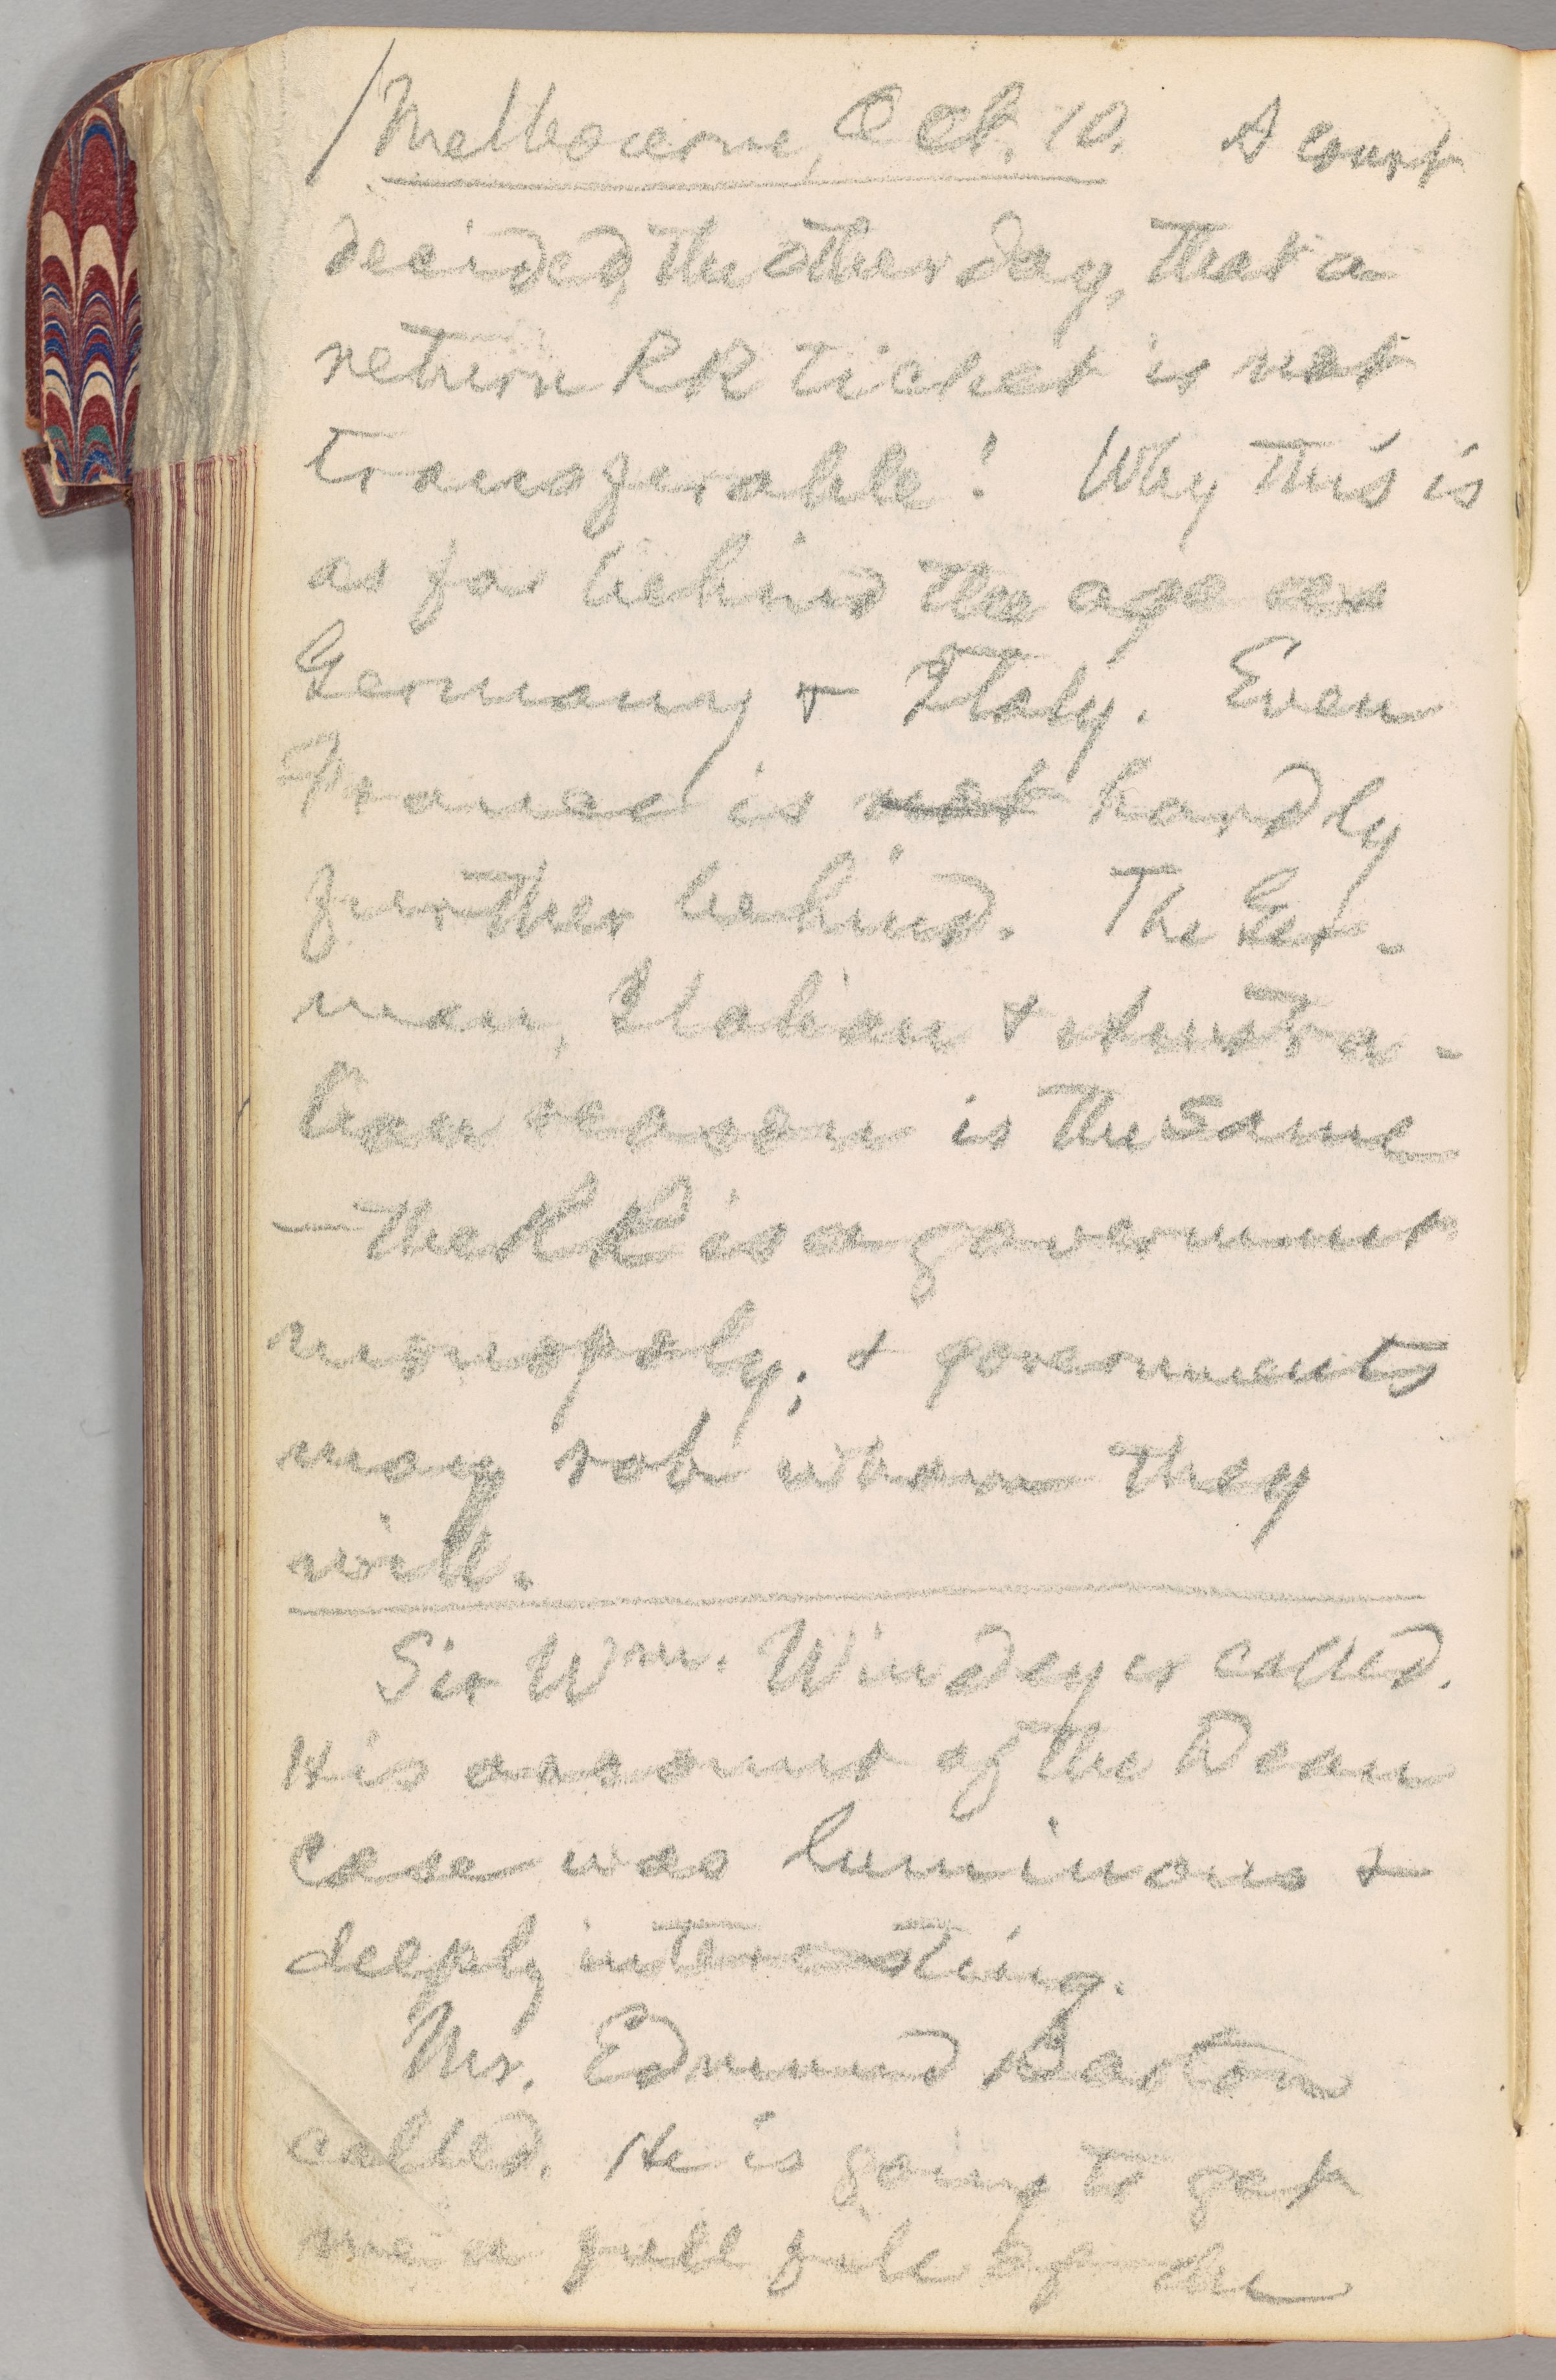 Melbourne, Oct. 10. A court
decided, the other day, that a
return RR ticket is not
transferable! Why this is
as far behind the age as
Germany & Italy. Even
France is not hardly
further behind. The Ger-
man, Italian & Austra-
lian reason is the same
—the RR is a government
monopoly; & governments
may rob whom they
will.
Sir Wm. Windeyer called.
His account of the Dean
case was luminous &
deeply interesting.
Mr. Edmund Barton
called. He is going to get
me a full file of the